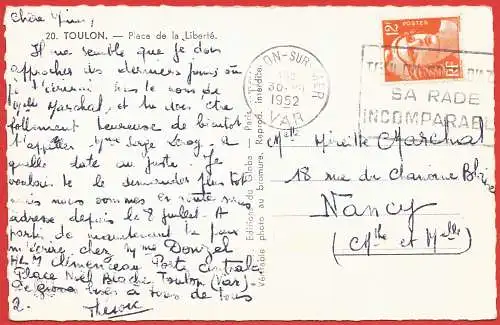 Chère Mimi,
20. TOULON. — Place de la Liberté.
Il me semble que je dois
approcher des derniers jours où
je t'écrirai sous le nom de
Mlle Marchal, et tu dois être
follement heureuse de bientôt
t'appeler Mme Serge Leroy. à
quelle date au juste. Je
voulais te le demander plus tôt
mais nous sommes en route
adresse depuis le 8 juillet. A
partir de maintenant tu peux
m'écrire chez Mme Donzel
HLM Clemenceau Porte Centrale
Place Noël Blache Toulon (Var).
De gros à vous
2.
Editions du Globe - Paris
Véritable photo au bromure. Reprod. interdite.
TOULON-SUR-MER
30-
1952
VAR
POSTES
2F
RF
SA RADE
INCOMPARABLE
Mlle Mireille Marchal
18 rue du Chanoine Blaise
Nancy
(Mthe et Melle)